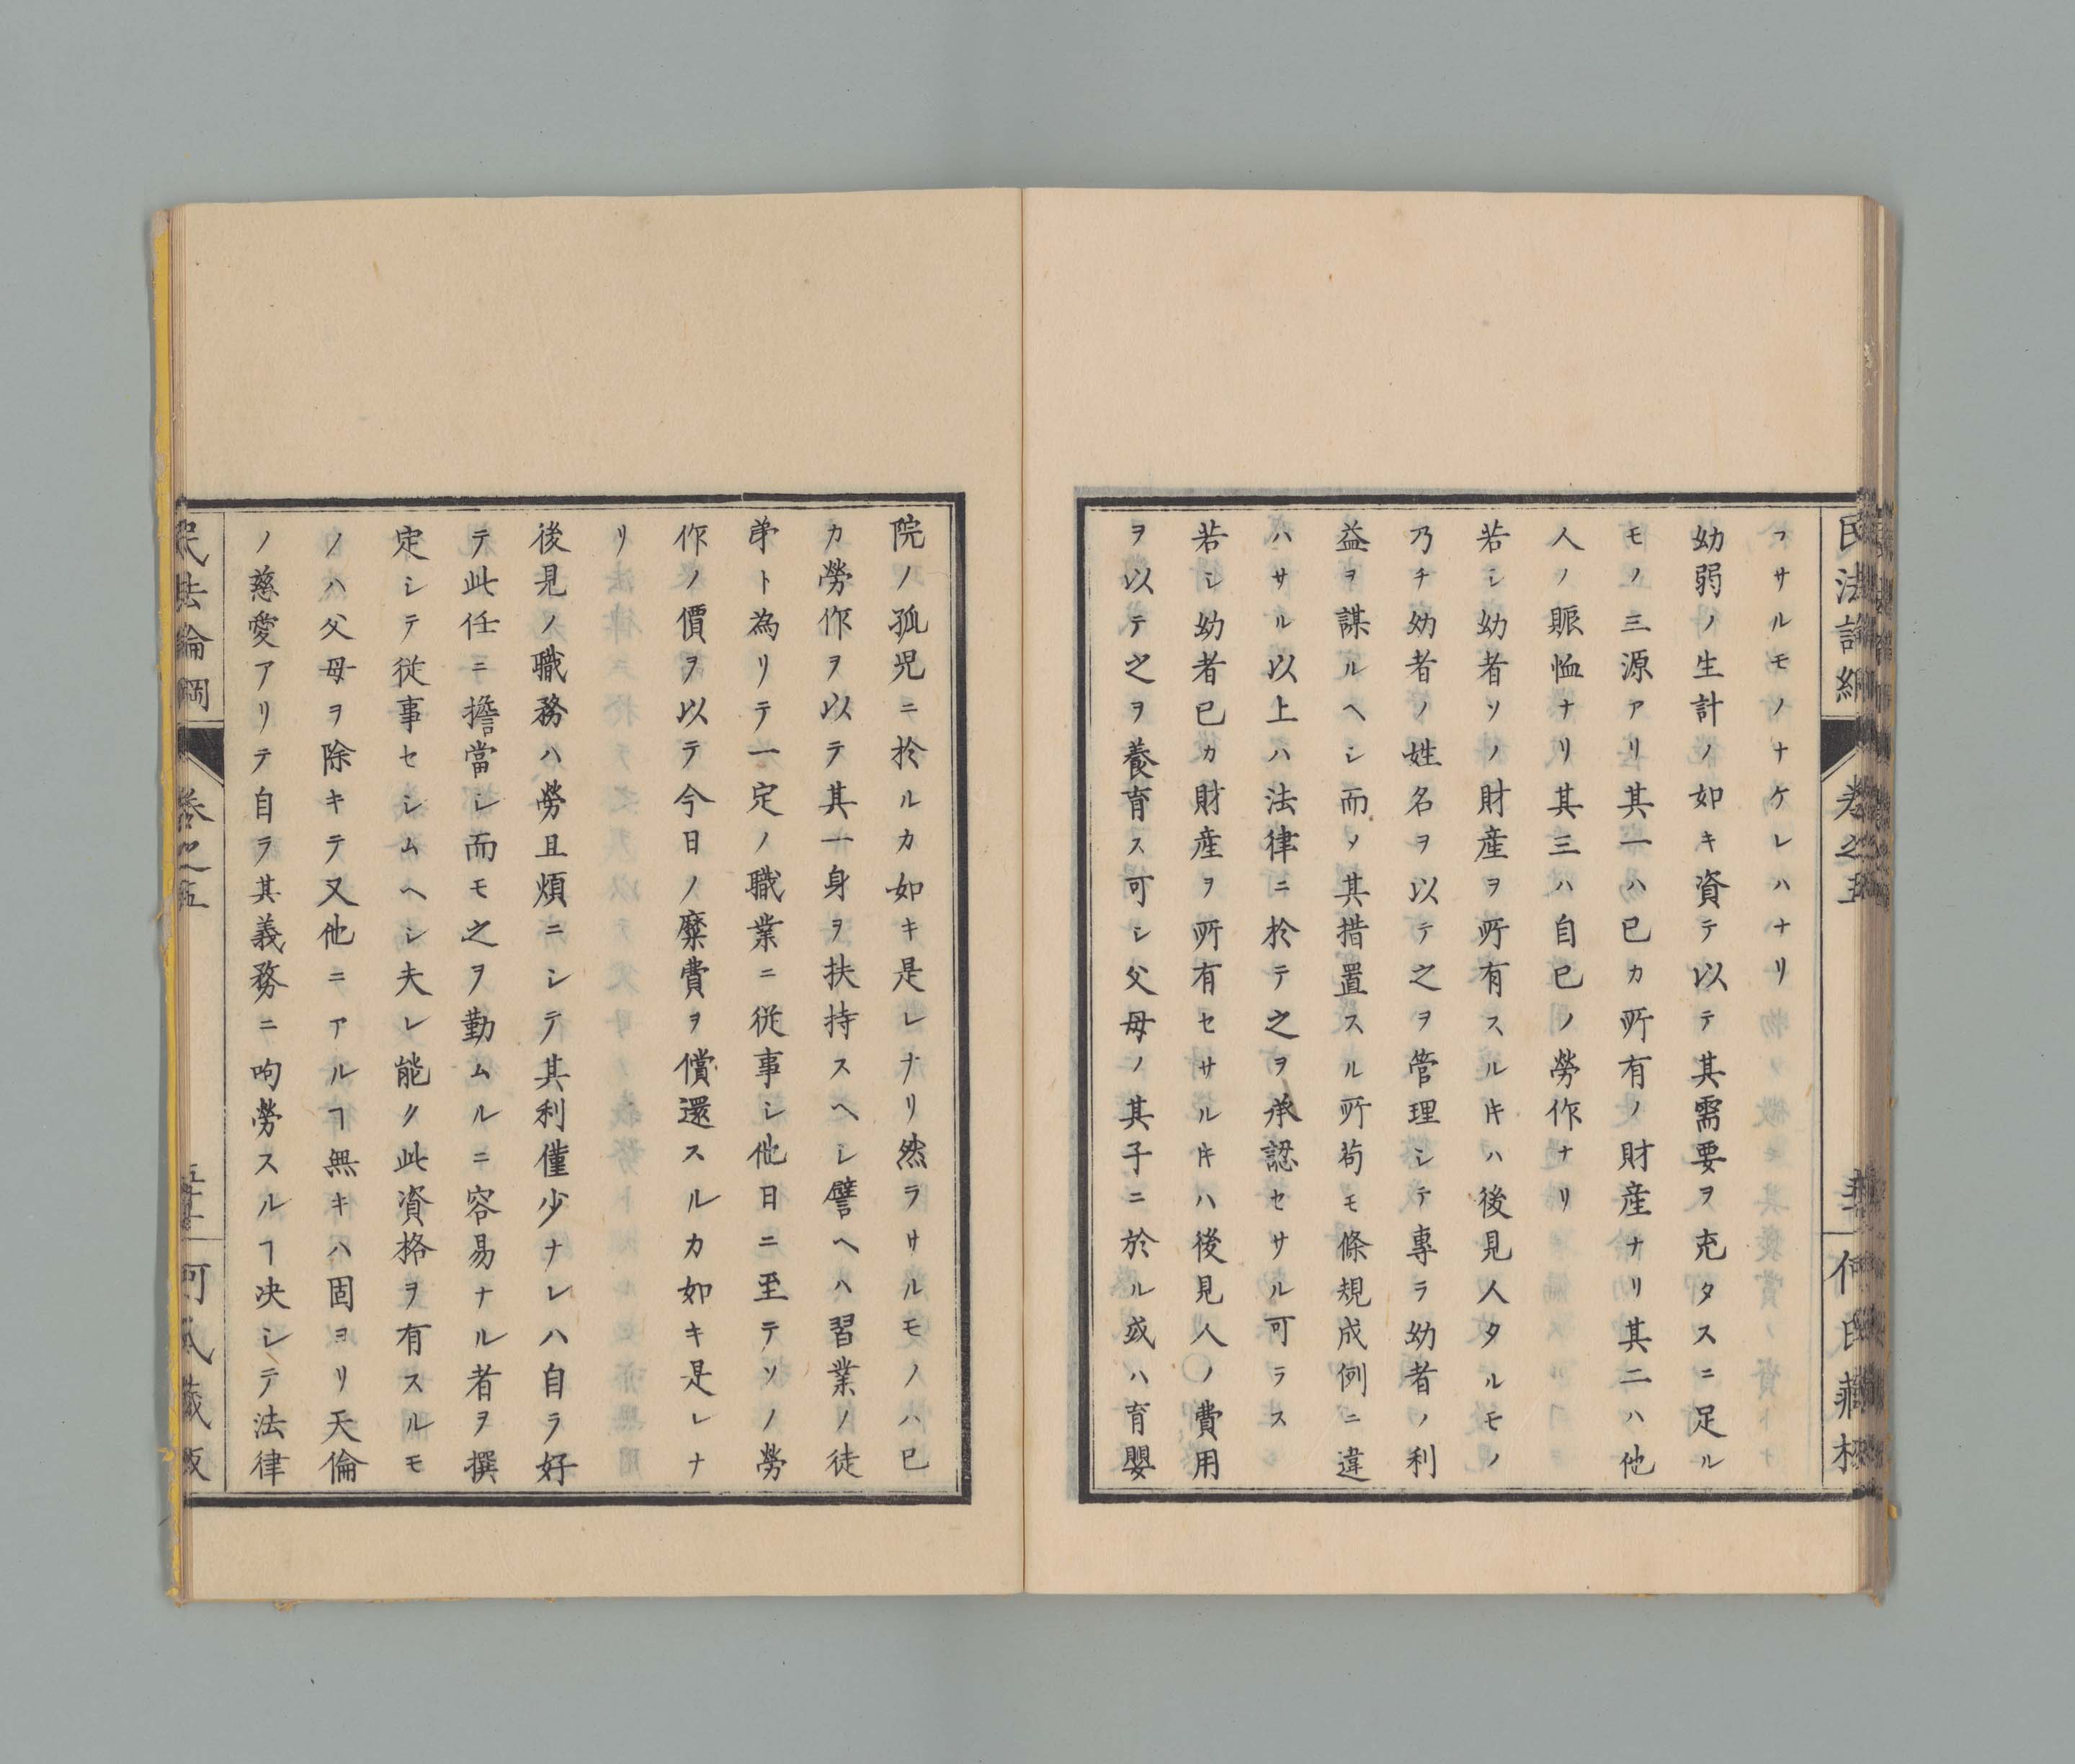 民法論綱
巻之五
何氏藏板
フサルモノナケレハナリ
幼弱ノ生計ノ如キ資テ以テ其需要ヲ充タスニ足ル
モノ三源アリ其一ハ已カ所有ノ財産ナリ其二ハ他
人ノ賑恤ナリ其三ハ自已ノ勞作ナリ
若シ幼者ソノ財産ヲ所有スルㇽ𪜈ハ後見人タルモノ
乃チ幼者ノ姓名ヲ以テ之ヲ管理シテ專ラ幼者ノ利
益ヲ謀ルヘシ而ソ其措置スル所苟モ條規成例ニ違
ハサル以上ハ法律ニ於テ之ヲ承認セサル可ラス
若シ幼者已カ財産ヲ所有セサル𪜈ハ後見人ノ費用
ヲ以テ之ヲ養育ス可シ父母ノ其子ニ於ル或ハ育嬰
院ノ孤児ニ於ルカ如キ是レナリ然ラサルモノハ已
カ勞作ヲ以テ其一身ヲ扶持スヘシ譬ヘハ習業ノ徒
弟ト為リテ一定ノ職業ニ従事シ他日ニ至テソノ勞
作ノ價ヲ以テ今日ノ糜費ヲ償還スルカ如キ是レナ
リ
後見ノ職務ハ勞且煩ニシテ其利僅少ナレハ自ラ好
テ此任ニ擔當シ而モ之ヲ勤ムルニ容易ナル者ヲ撰
定シテ従事セシムヘシ夫レ能ク此資格ヲ有スルモ
ノハ父母ヲ除キテ又他ニアルヿ無キハ固ヨリ天倫
ノ慈愛アリテ自ラ其義務ニ呴勞スルヿ决シテ法律
民法論綱
巻之五
何氏藏版